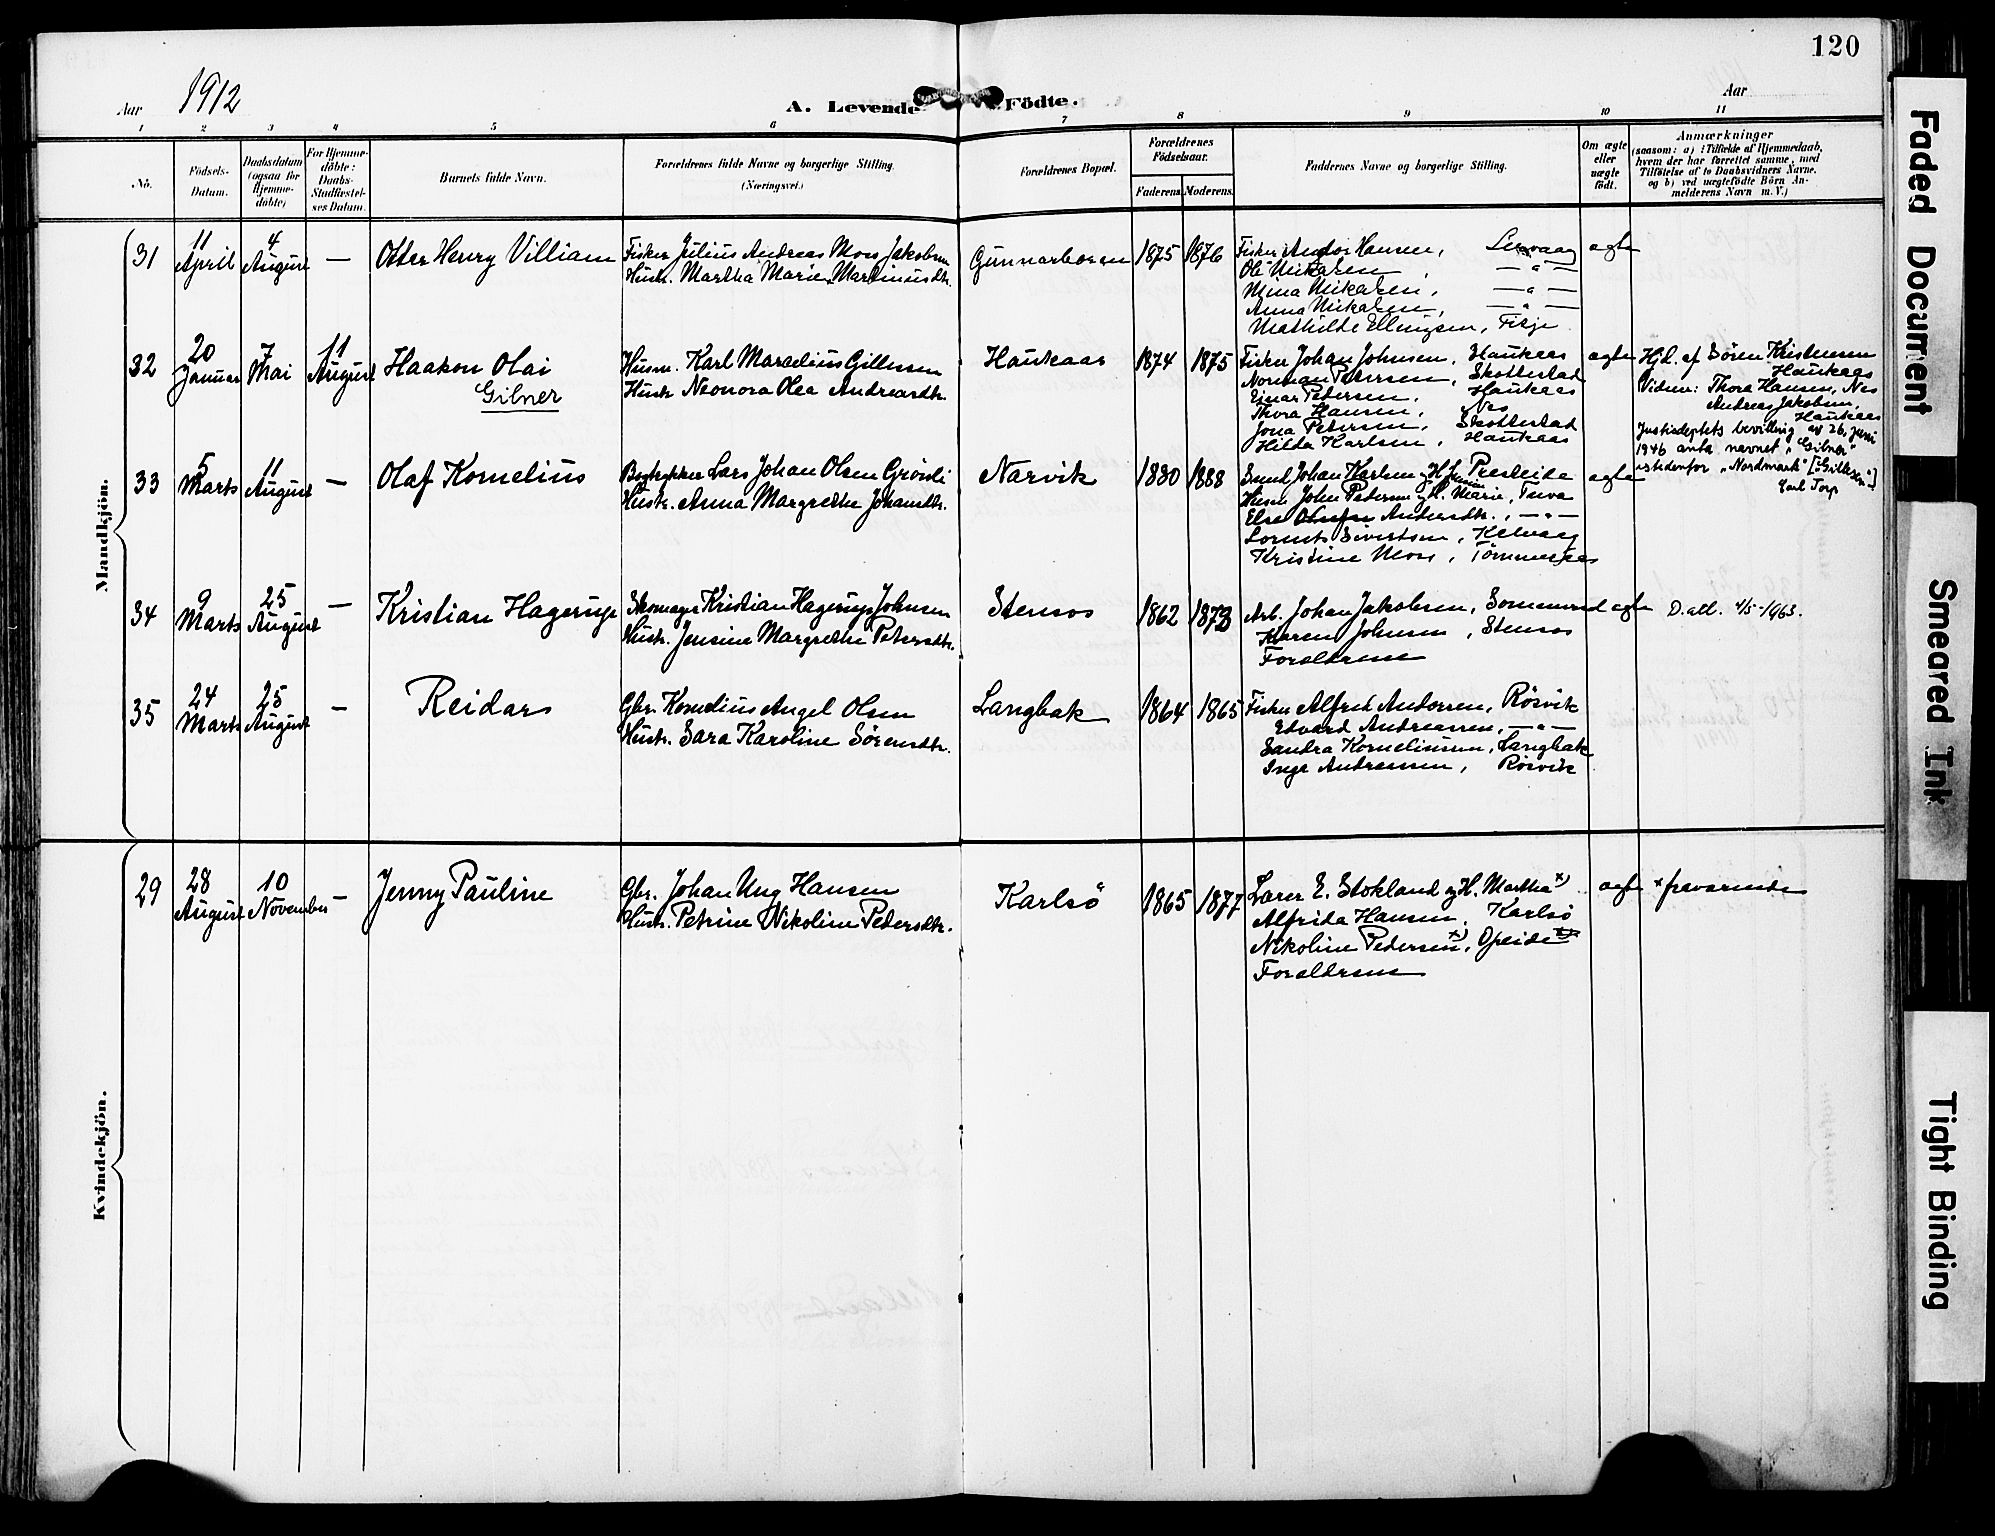 120
Aar 1912
A. Levende Födte.
Aar
1 2 3 4 5 6 7 8 9 10 11
No.
Födsels-
Datum.
Daabsdatum
(ogsaa for
Hjemme-
döbte)
For Hjemme-
döbte:
Daabs-
Stadfæstel-
ses Datum.
Barnets fulde Navn.
Forældrenes fulde Navne og borgerlige Stilling.
(Næringsvei.)
Forældrenes Bopæl.
Forældrenes
Födselsaar.
Faderens Moderens.
Faddernes Navne og borgerlige Stilling.
Om ægte
eller
uægte
født.
Anmærkninger
(saasom: a) i Tilfælde af Hjemmedaab,
hvem der har forrettet samme, med
Tilföielse af to Daabsvidners Navne.
og b) ved uægtefödte Börn An-
melderens Navn m. V.)
Mandkjön.
31
11
April
4
August
—
Otter Henry Villiam
Fisker Julius Andreas Mons Jakobsen
Hustr. Martha Marie Martinusdtr.
Gunnarboren
1875
1876
Fisker Andor Hansen, Lervaag
Ole Mikalsen, — " —
Mina Mikalsen, — " —
Anna Mikalsen, — " —
Mathilde Ellingsen,
ægte
32
20
Januar
7
Mai
11
August
Haakon Olai
Gilner
Husm. Karl Marselius Gillesen
Hustr Neonora Olea Andreasdtr.
Haukaas
1874
1875
Fisker Johan Johnsen, Haukaas
Norman Petersen, Skottestad
Einar Petersen, Haukaas
Thora Hansen, Nes
Jona Petersen, Skottestad
Hilda Karlsen, Haukaas
ægte
Hjd. af Sören Kristensen
Haukaas
Vidner: Thora Hansen, Nes
Andreas Jakobsen,
Haukaas
Justisdeptets bevilling av 26. juni
1946 anta navnet "Gilner"
istedenfor "Nordmark" ["Gillesen"]
Carl Torp
33
5
Marts
11
August
—
Olaf Kornelius
Bogtrykker Lars Johan Olsen Gröndi
Hustr. Anna Margrethe Johansdtr.
Narvik
1880
1888
Smed Johan Karlsen og H. Presteide
Husm John Pedersen og H. Marie, Tuva
Else Andersdtr., — " —
Lorents Sivertsen,
Kristine Mons, Tömmernes
ægte
34
9
Marts
25
August
—
Kristian Hagerup
Skomager Kristian Hagerup Johnsen
Hustr. Jensine Margrethe Petersdtr.
Stensos
1862
1873
Arb. Johan Jakobsen, Sommersel
Karen Johnsen, Stensos
Forældrene
ægte
D. att. 4/5-1963.
35
24
Marts
25
August
—
Reidar
Gbr. Kornelius Angel Olsen
Hustr. Sara Karoline Sörensdtr.
Langbak
1864
1865
Fisker Alfred Andorsen, Rösvik
Edvard Andreassen, — " —
Sandra Korneliussen, Langbak
Inga Andreassen, Rösvik
Kvindekjön.
29
28
August
10
November
—
Jenny Pauline
Gbr. Johan Ung Hansen
Hustr. Petrine Nikoline Pedersdtr.
Karlsö
1865
1877
Lærer E. Stokland og H. Martha x)
Alfrida Hansen, Karlsö
Nikoline Pedersen x), Opeide
Forældrene
ægte
x fraværende
Faded Document
Smeared Ink
Tight Binding